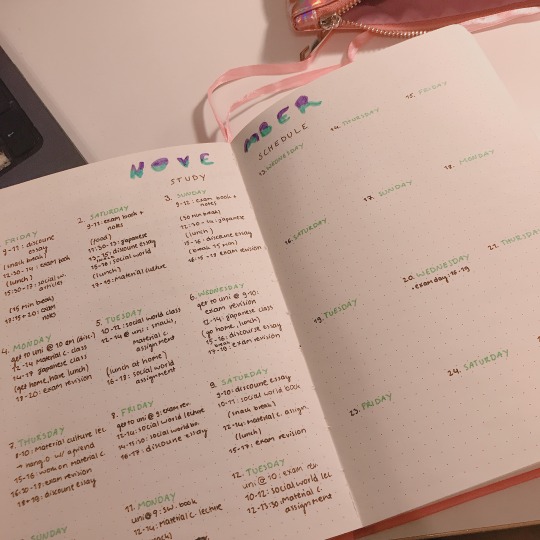 NOVE
STUDY
FRIDAY
9-11: discourse
essay
(snack break)
12:30-14: exam book
(lunch)
15:30-17: social w.
articles
(15 min break)
exam
notes
2. SATURDAY
9-11: exam book +
notes
(food)
11:30-13: japanese
discourse essay
social world
(lunch)
17-19: material culture
3. SUNDAY
9-12: exam book +
notes
(30 min break)
12:30-14: japanese
(lunch)
15-16: discourse essay
(break 15 min)
exam revision
4. MONDAY
get to uni @ 10 am (disc.)
12-14 Material c. class
japanese class
(get home, have lunch)
18-20: exam revision
5. TUESDAY
10-12: social world class
12-14 @ uni: snacks,
material c.
assignment
(lunch at home)
16-18: social world
assignment
6. WEDNESDAY
get to uni @ 9-10:
exam revision
12-14: japanese
(go home, lunch)
15-16: discourse
essay
exam revision
7. THURSDAY
8-10: Material culture lec.
hang o. w/ a friend
15-16: work on material c.
exam revision
discourse essay
8. FRIDAY
get to uni @ 9: exam rev.
12-14: social world lecture
social world
16-17: discourse essay
9. SATURDAY
9-10: discourse essay
10-11: social world book
(snack break)
12-14: material c. assign.
(lunch)
15-17: exam revision
SUNDAY
11. MONDAY
uni @ 9: sw. book
12-14: Material c. lecture
12. TUESDAY
uni @ 10: exam rev.
10-12: social world lec
12-13:30: Material c.
assignment
MBER
SCHEDULE
13. WEDNESDAY
14. THURSDAY
15. FRIDAY
16. SATURDAY
17. SUNDAY
18. MONDAY
19. TUESDAY
20. WEDNESDAY
• exam day: 16-19
21. THURSDAY
FRIDAY
24. SATURDAY